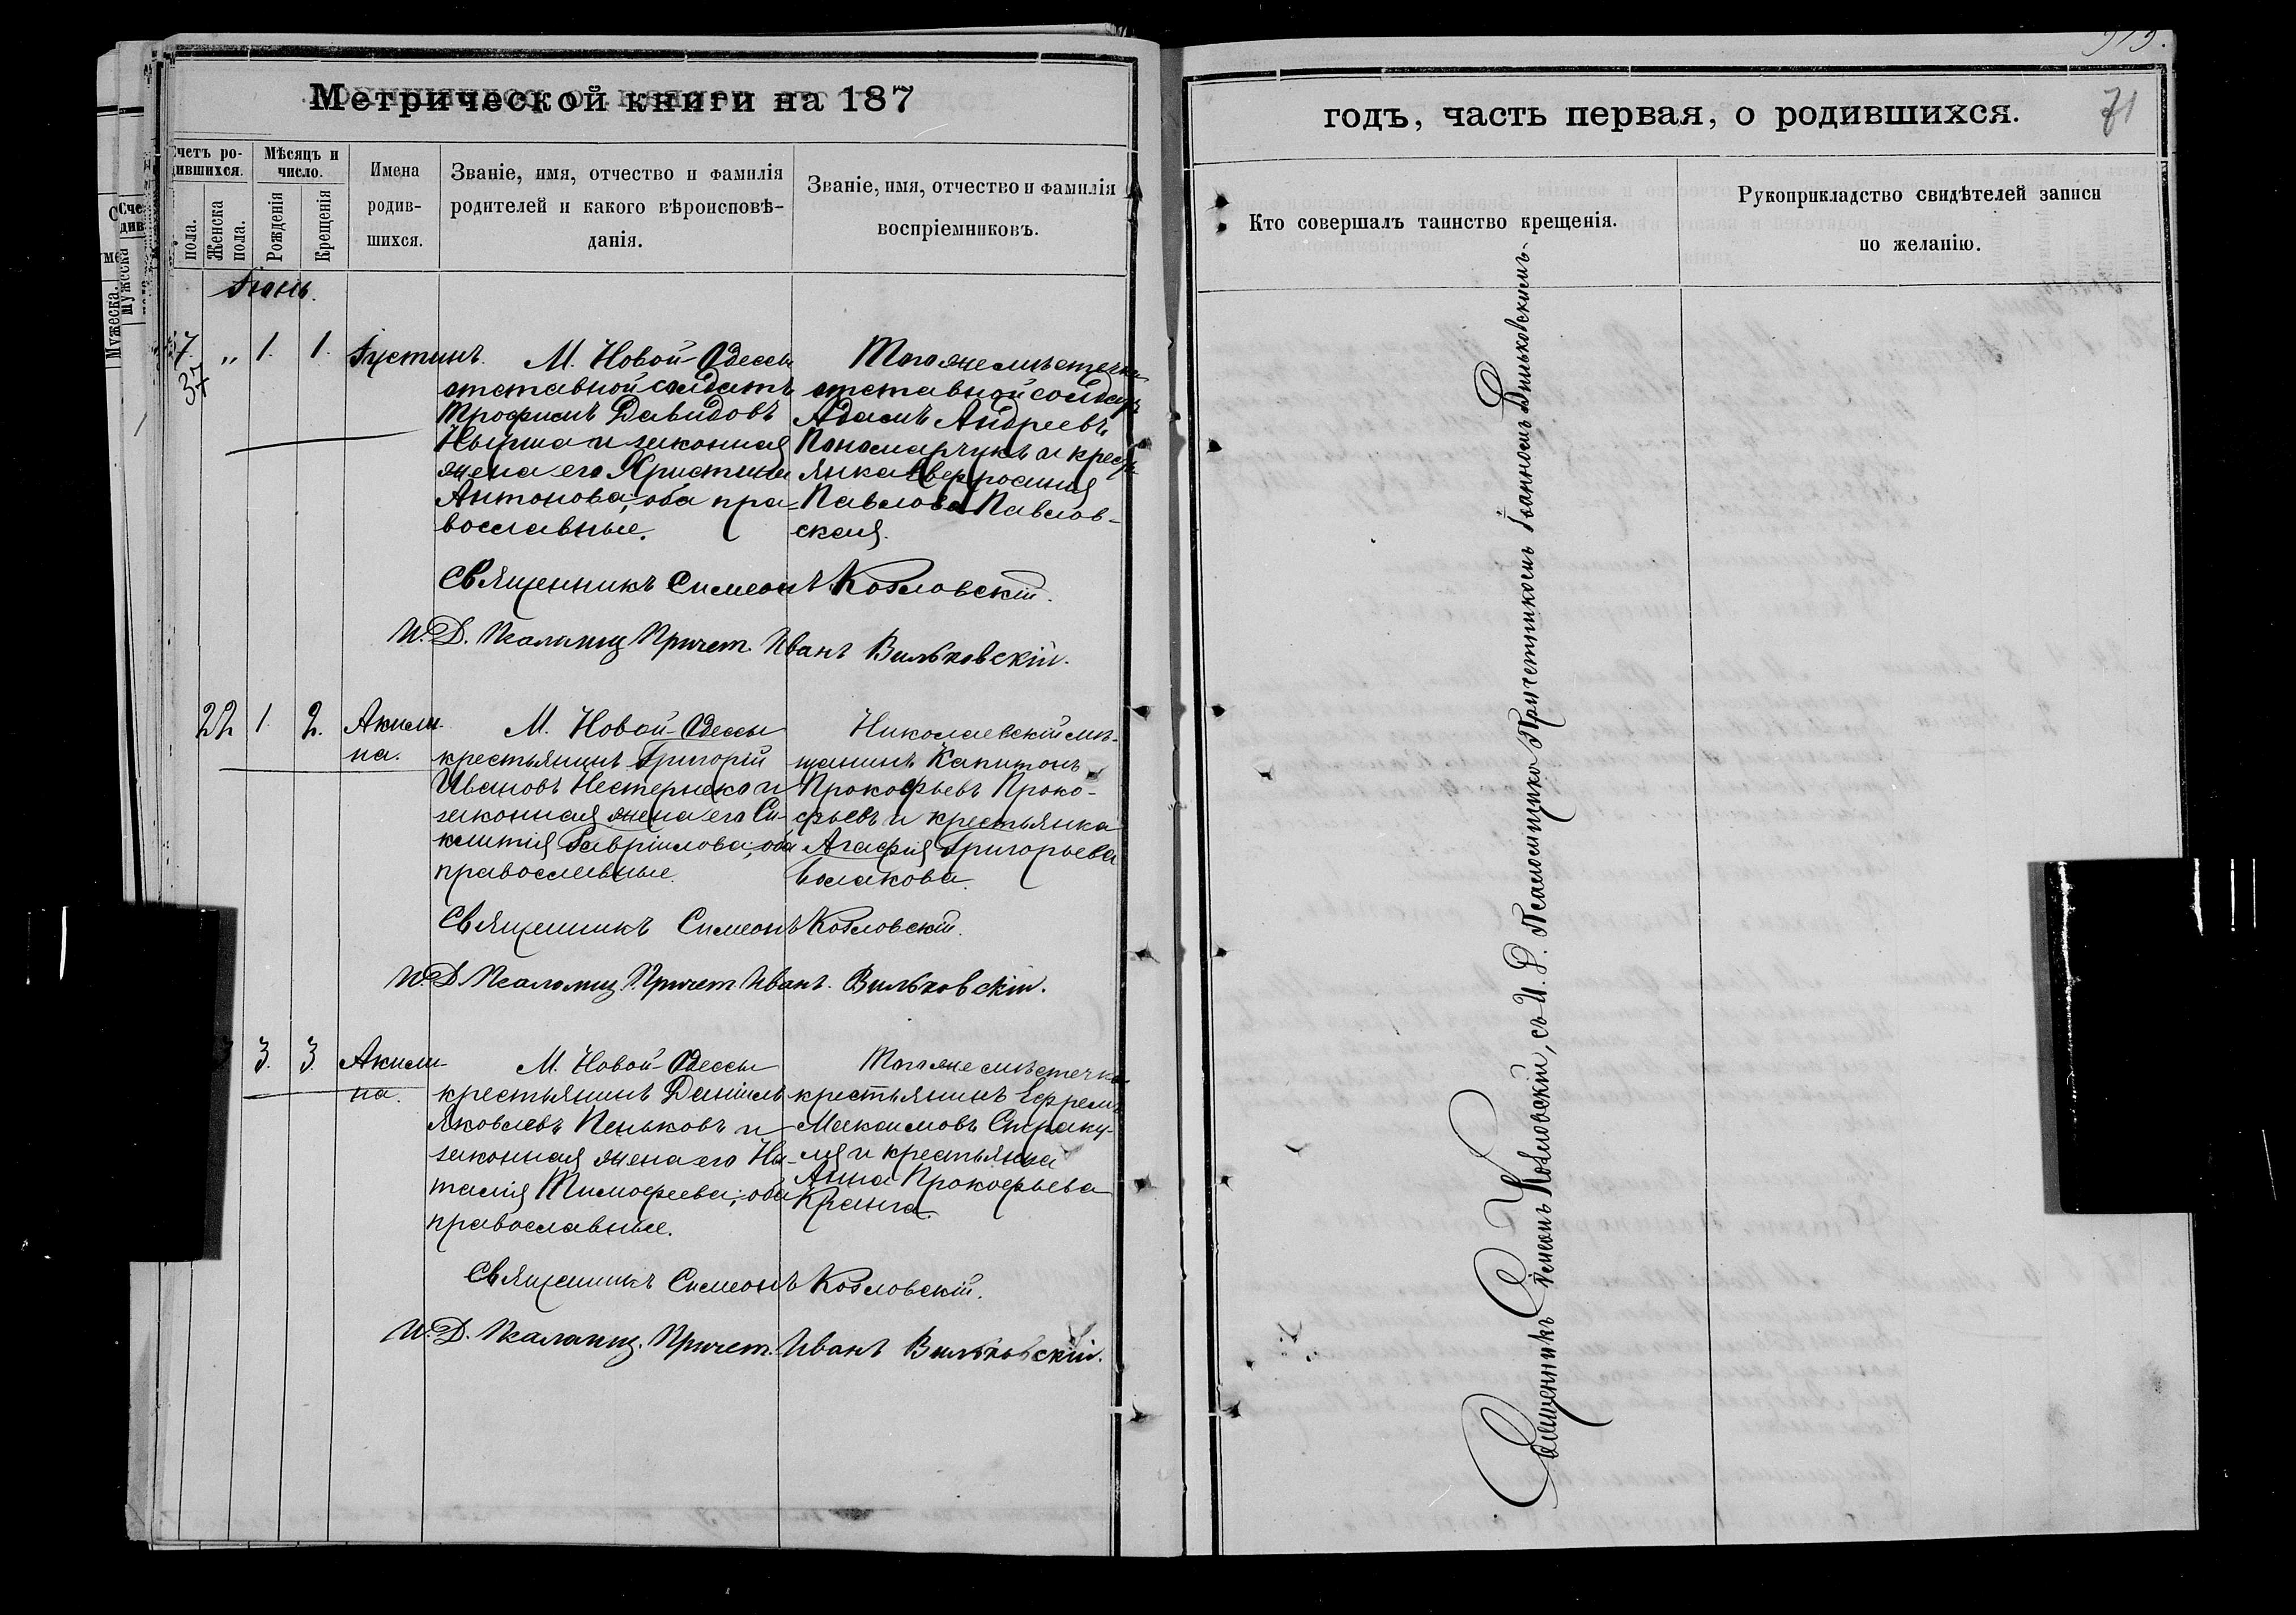 Метрической книги на 187
Счетъ родившихся.
Мѣсяцъ и число.
пола.
Женска пола.
Рожденія
Крещенія
Имена родив-
шихся.
Званіе, имя, отчество и фамилія
родителей и какого вѣроисповѣ-
данія.
Званіе, имя, отчество и фамилія
воспріемниковъ.
Іюнь.
37
„
1.
1.
Іустинъ.
М. Новой-Одессы
отставной солдатъ
Трофимъ Давидовъ
и законная
жена его Христина
Антонова, оба пра-
вославные.
Того же мѣстечка
отставной солдатъ
Адамъ Андреевъ
Пономарчукъ и кресть-
янка Евфросинія
Павлова Павлов-
ская.
Священникъ Симеонъ Козловскій.
И. Д. Псаломщ. Причет. Иванъ Вильковскій.
22
1.
2.
Акили-
на.
М. Новой-Одессы
крестьянинъ Григорій
Ивановъ Нестернеко и
законная жена его Си-
клитія Гавріилова, оба
православные.
Николаевскій мѣ-
щанинъ Капитонъ
Прокофьевъ Проко-
фьевъ и крестьянка
Агафія Григорьева
Священникъ Симеонъ Козловскій.
И. Д. Псаломщ. Причет. Иванъ Вильковскій.
3.
3.
Акили-
на.
М. Новой-Одессы
крестьянинъ Даніилъ
Яковлевъ Пеньковъ и
законная жена его На-
талія Тимофеева, оба
православные.
Того же мѣстечка
крестьянинъ Ефремъ
Максимовъ
и крестьянка
Анна Прокофьева
Священникъ Симеонъ Козловскій.
И. Д. Псаломщ. Причет. Иванъ Вильковскій.
годъ, часть первая, о родившихся.
71
Кто совершалъ таинство крещенія.
Рукоприкладство свидѣтелей записи
по желанію.
Священникъ Симеонъ Козловскій, съ И. Д. Псаломщика Причетникомъ Іоанномъ Вильковскимъ